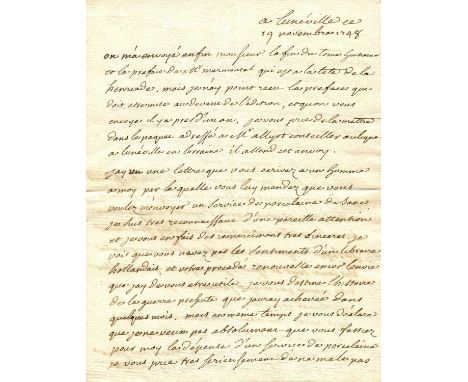 a lunéville ce
19 novembre 1748
on m'a envoyé enfin monsieur la fin du tome
et la preface de Mr. marmontel qui est a la teste de la
henriade, mais je n'ay point receu la preface que
doit estre mise au devant de l'edition, et qu'on vous
envoya il y a pres d'un an, je vous prie de la mettre
dans le paquet adressé a Mr. alliot conseiller aulique
a lunéville en lorraine il attend cet envoy.
j'ay vu une lettre que vous ecrivez a un homme
a moy par la quelle vous luy mandez que vous
voulez m'envoyer un service de porcelaine de Saxe,
je suis tres reconnaissant d'une pareille attention
et je vous en fais des remerciments tres sinceres, je
vois que vous n'avez pas les sentiments d'un libraire
hollandais, et votre procedé renouvelle encor l'envie
que j'ay de vous etre utile, je vous destine l'histoire
de la guerre presente que j'auray achevée dans
quelques mois, mais en meme temps je vous declare
que je ne veux pas absolument que vous fassiez
pour moy la dépense d'un service de porcelaine
je vous prie tres serieusement de ne me le pas